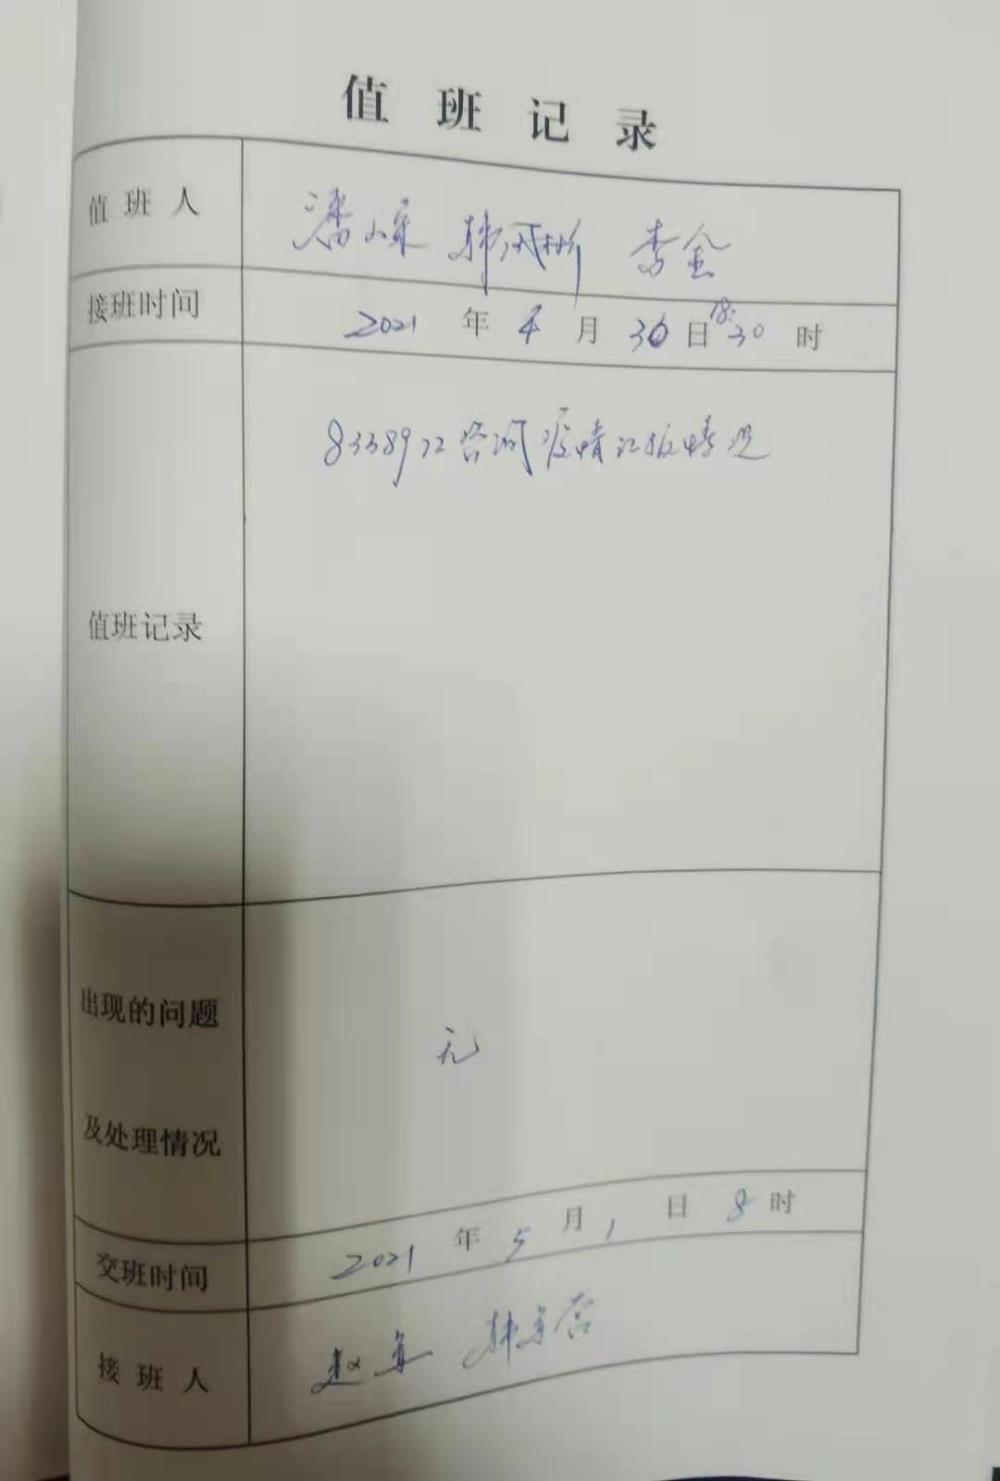 值班记录
值班人 潘 韩 李金
接班时间 2021年4月30日18:30时
8338972咨询疫情汇报情况
值班记录
出现的问题
无
及处理情况
交班时间 2021年5月1日8时
接班人 赵 韩